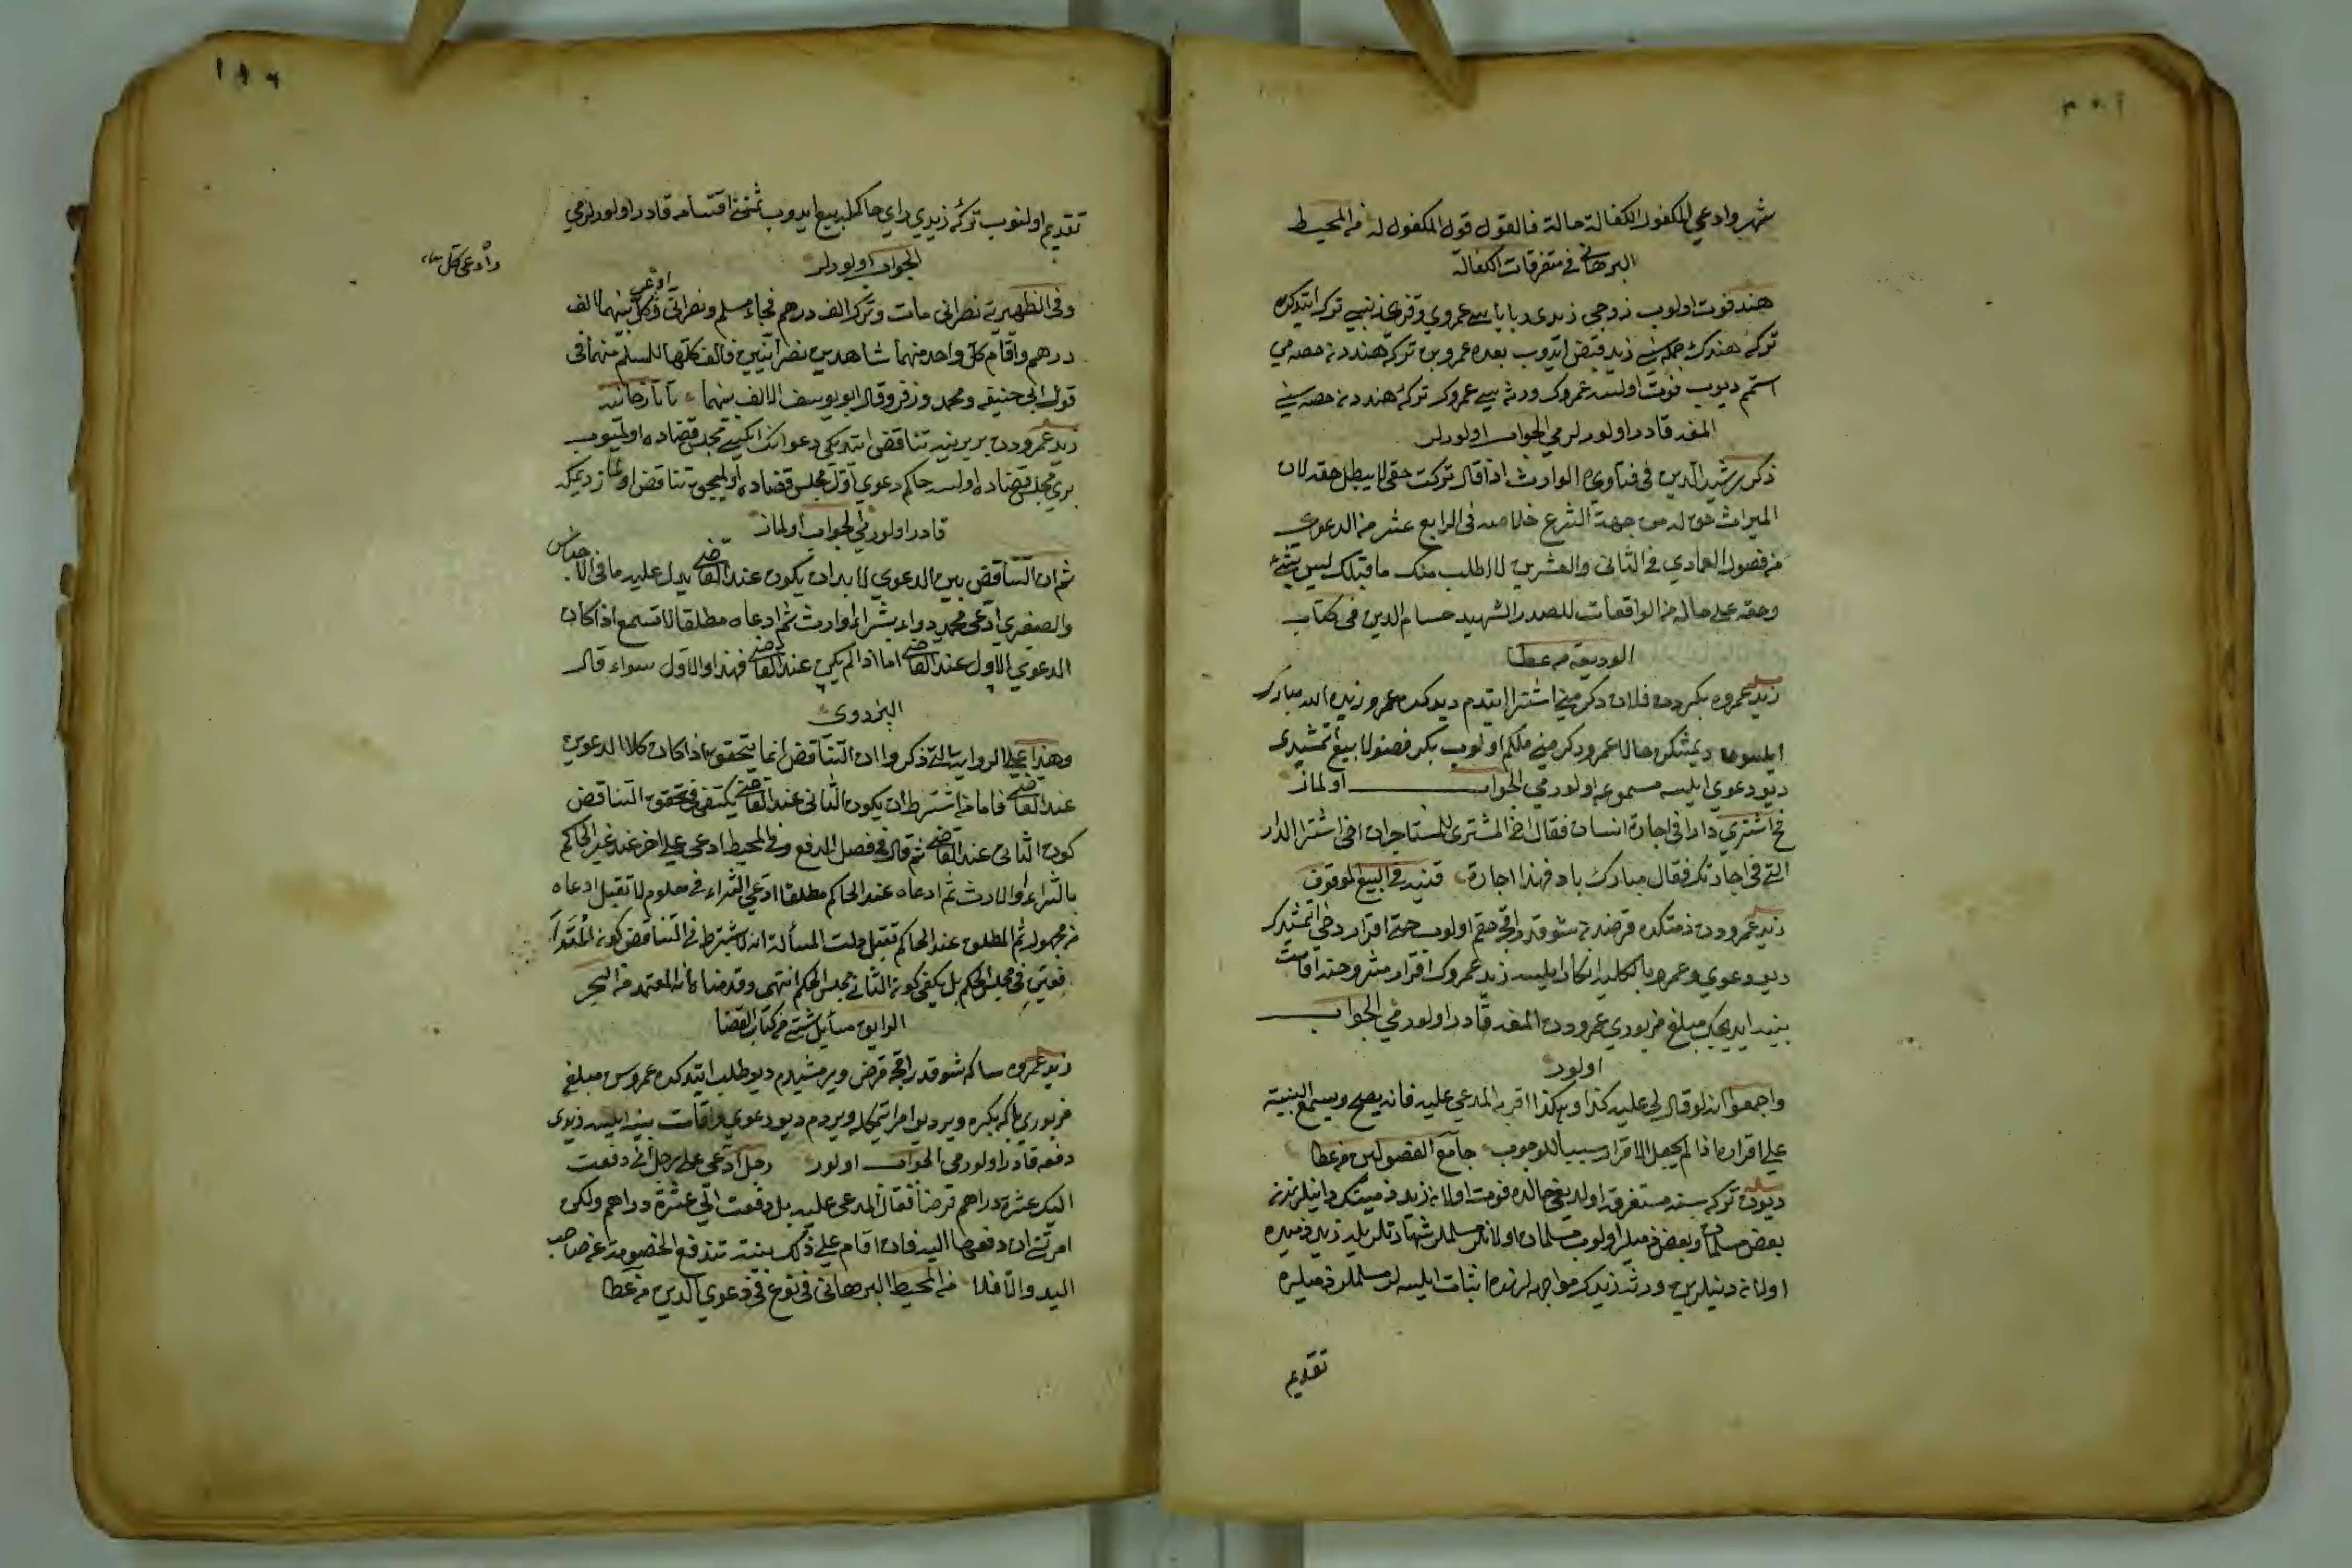 شهر وادعي المكفول الكفالة حالة فالقول قول المكفول له من المحيط
البرهاني في متفرقات الكفالة
هند فوت اولوب زوجي زيدي وباباسي عمروي وقزي زينبي ترك ايتدكده
تركهٔ هندك جمله سني زيد قبض ايدوب بعده عمرو بن تركهٔ هندده حصه مي
استم ديوب فوت اولسه عمروك ورثه سي عمروك تركهٔ هندده حصه سني
المغه قادر اولورلرمي الجواب اولورلر
ذكر رشيد الدين في فتاويه الوارث اذا قال تركت حقي لا يبطل حقه لان
الميراث حق له من جهة الشرع خلاصه في الرابع عشر من الدعوى
من فصول العمادي في الثاني والعشرين لا اطلب منك ما قبلك ليس بشئ
وحقه على حاله من الواقعات للصدر الشهيد حسام الدين في كتاب
الوديعة من عطا
زيد عمروه بكردن فلان دكرمني اشترا ايتدم ديدكده عمرو زيده الله مبارك
ايلسون ديمشكن حالا عمرو دكرمني ملكم اولوب بكر فضولا بيع ايتمشيدي
ديو دعوي ايلسه مسموعه اولورمي الجواب اولماز
خ اشترى دارا في اجارة انسان فقال اخ المشتري للمستاجر ان اخي اشترا الدار
التي في اجارتك فقال مبارك باد فهذا اجازة قنيه في البيع الموقوف
زيد عمرودن ذمتكده قرضدن شو قدر اقچه حقم اولوب حتى اقرار دخي ايتمشيدك
ديو دعوي وعمرو بالكليه انكار ايلسه زيد عمروك اقرار مشروحنه اقامت
بينه ايديجك مبلغ مزبوري عمرودن المغه قادر اولورمي الجواب
اولور
واجمعوا انه لو قال لي عليه كذا وهكذا اقر به المدعي عليه فانه يصح ويسمع البينة
على اقراره اذا لم يجعل الاقرار سببا للوجوب جامع الفصولين من عطا
ديون تركه سنه مستغرقه اولديغي حالده فوت اولان زيد ذمينك داينلرندن
بعض مسلمان وبعض ذميلر اولوب مسلمان اولانلر مسلملر شهادتلريله زيد ذميده
اولان دينلرين ورثهٔ زيدك مواجهه لرنده اثبات ايلسه لر مسلملر ذميلره
تقديم
تقديم اولنوب تركهٔ زيدي راي حاكمله بيع ايدوب ثمنني اقتسامه قادر اولورلرمي
الجواب اولورلر
وفي الظهيرية نصراني مات وترك الف درهم فجاء مسلم ونصراني وكل بينهما الف
ادعى
وادعى كل
درهم واقام كل واحد منهما شاهدين نصرانيين فالف كلها للمسلم منهما في
قول ابي حنيفه ومحمد وزفر وقال ابو يوسف الالف بينهما تاتارخانيه
زيد عمرودن بربرينه تناقض ايتديكي دعوانك ايكيسي مجلس قضاده اولميوب
بري مجلس قضاده اولسه حاكم دعوي اول مجلس قضاده اولميجق تناقض اولماز ديمكه
قادر اولورمي الجواب اولماز
ثم ان التناقض بين الدعوي لا بد ان يكون عند القاضي يدل عليه ما في الاجناس
والصغري ادعى محدودا بشراء او ارث ثم ادعاه مطلقا لا تسمع اذا كان
الدعوي الاول عند القاضي اما اذا لم يكن عند القاضي فهذا والاول سواء قال
البزدوي
وهذا على الرواية التي ذكروا ان التناقض انما يتحقق اذا كان كلا الدعوين
عند القاضي فاما من اشترط ان يكون الثاني عند القاضي يكتفي في تحقق التناقض
كون الثاني عند القاضي ثم قال في فصل الدفع وفي المحيط ادعى على اخر عند غير الحاكم
بالشراء او الارث ثم ادعاه عند الحاكم مطلقا ادعي الشراء في معلوم لا تقبل ادعاه
من مجهول ثم المطلق عند الحاكم تقبل دلت المسألة انه لا يشترط في التناقض كون المتدا
فعتين في مجلس الحكم بل يكفي كون الثاني مجلس الحكم انتهى وقدمنا انه المعتمد من البحر
الرايق مسائل شتى من كتاب القضا
زيد عمروه ساكه شو قدر اقچه قرض ويرمشيدم ديو طلب ايتدكده عمرو سن مبلغ
مزبوري باكه بكره وير ديو امر ايتمكله ويردم ديو دعوي واقامت بينه ايلسه زيدي
دفعه قادر اولورمي الجواب اولور رجل ادعى على رجل اني دفعت
اليك عشرة دراهم قرضا فقال المدعى عليه بل دفعت الي عشرة دراهم ولكن
امرتني ان دفعها اليه فان اقام على ذلك بينة تندفع الخصومة عن صاحب
اليد والا فلا من المحيط البرهاني في نوع في دعوي الدين من عطا